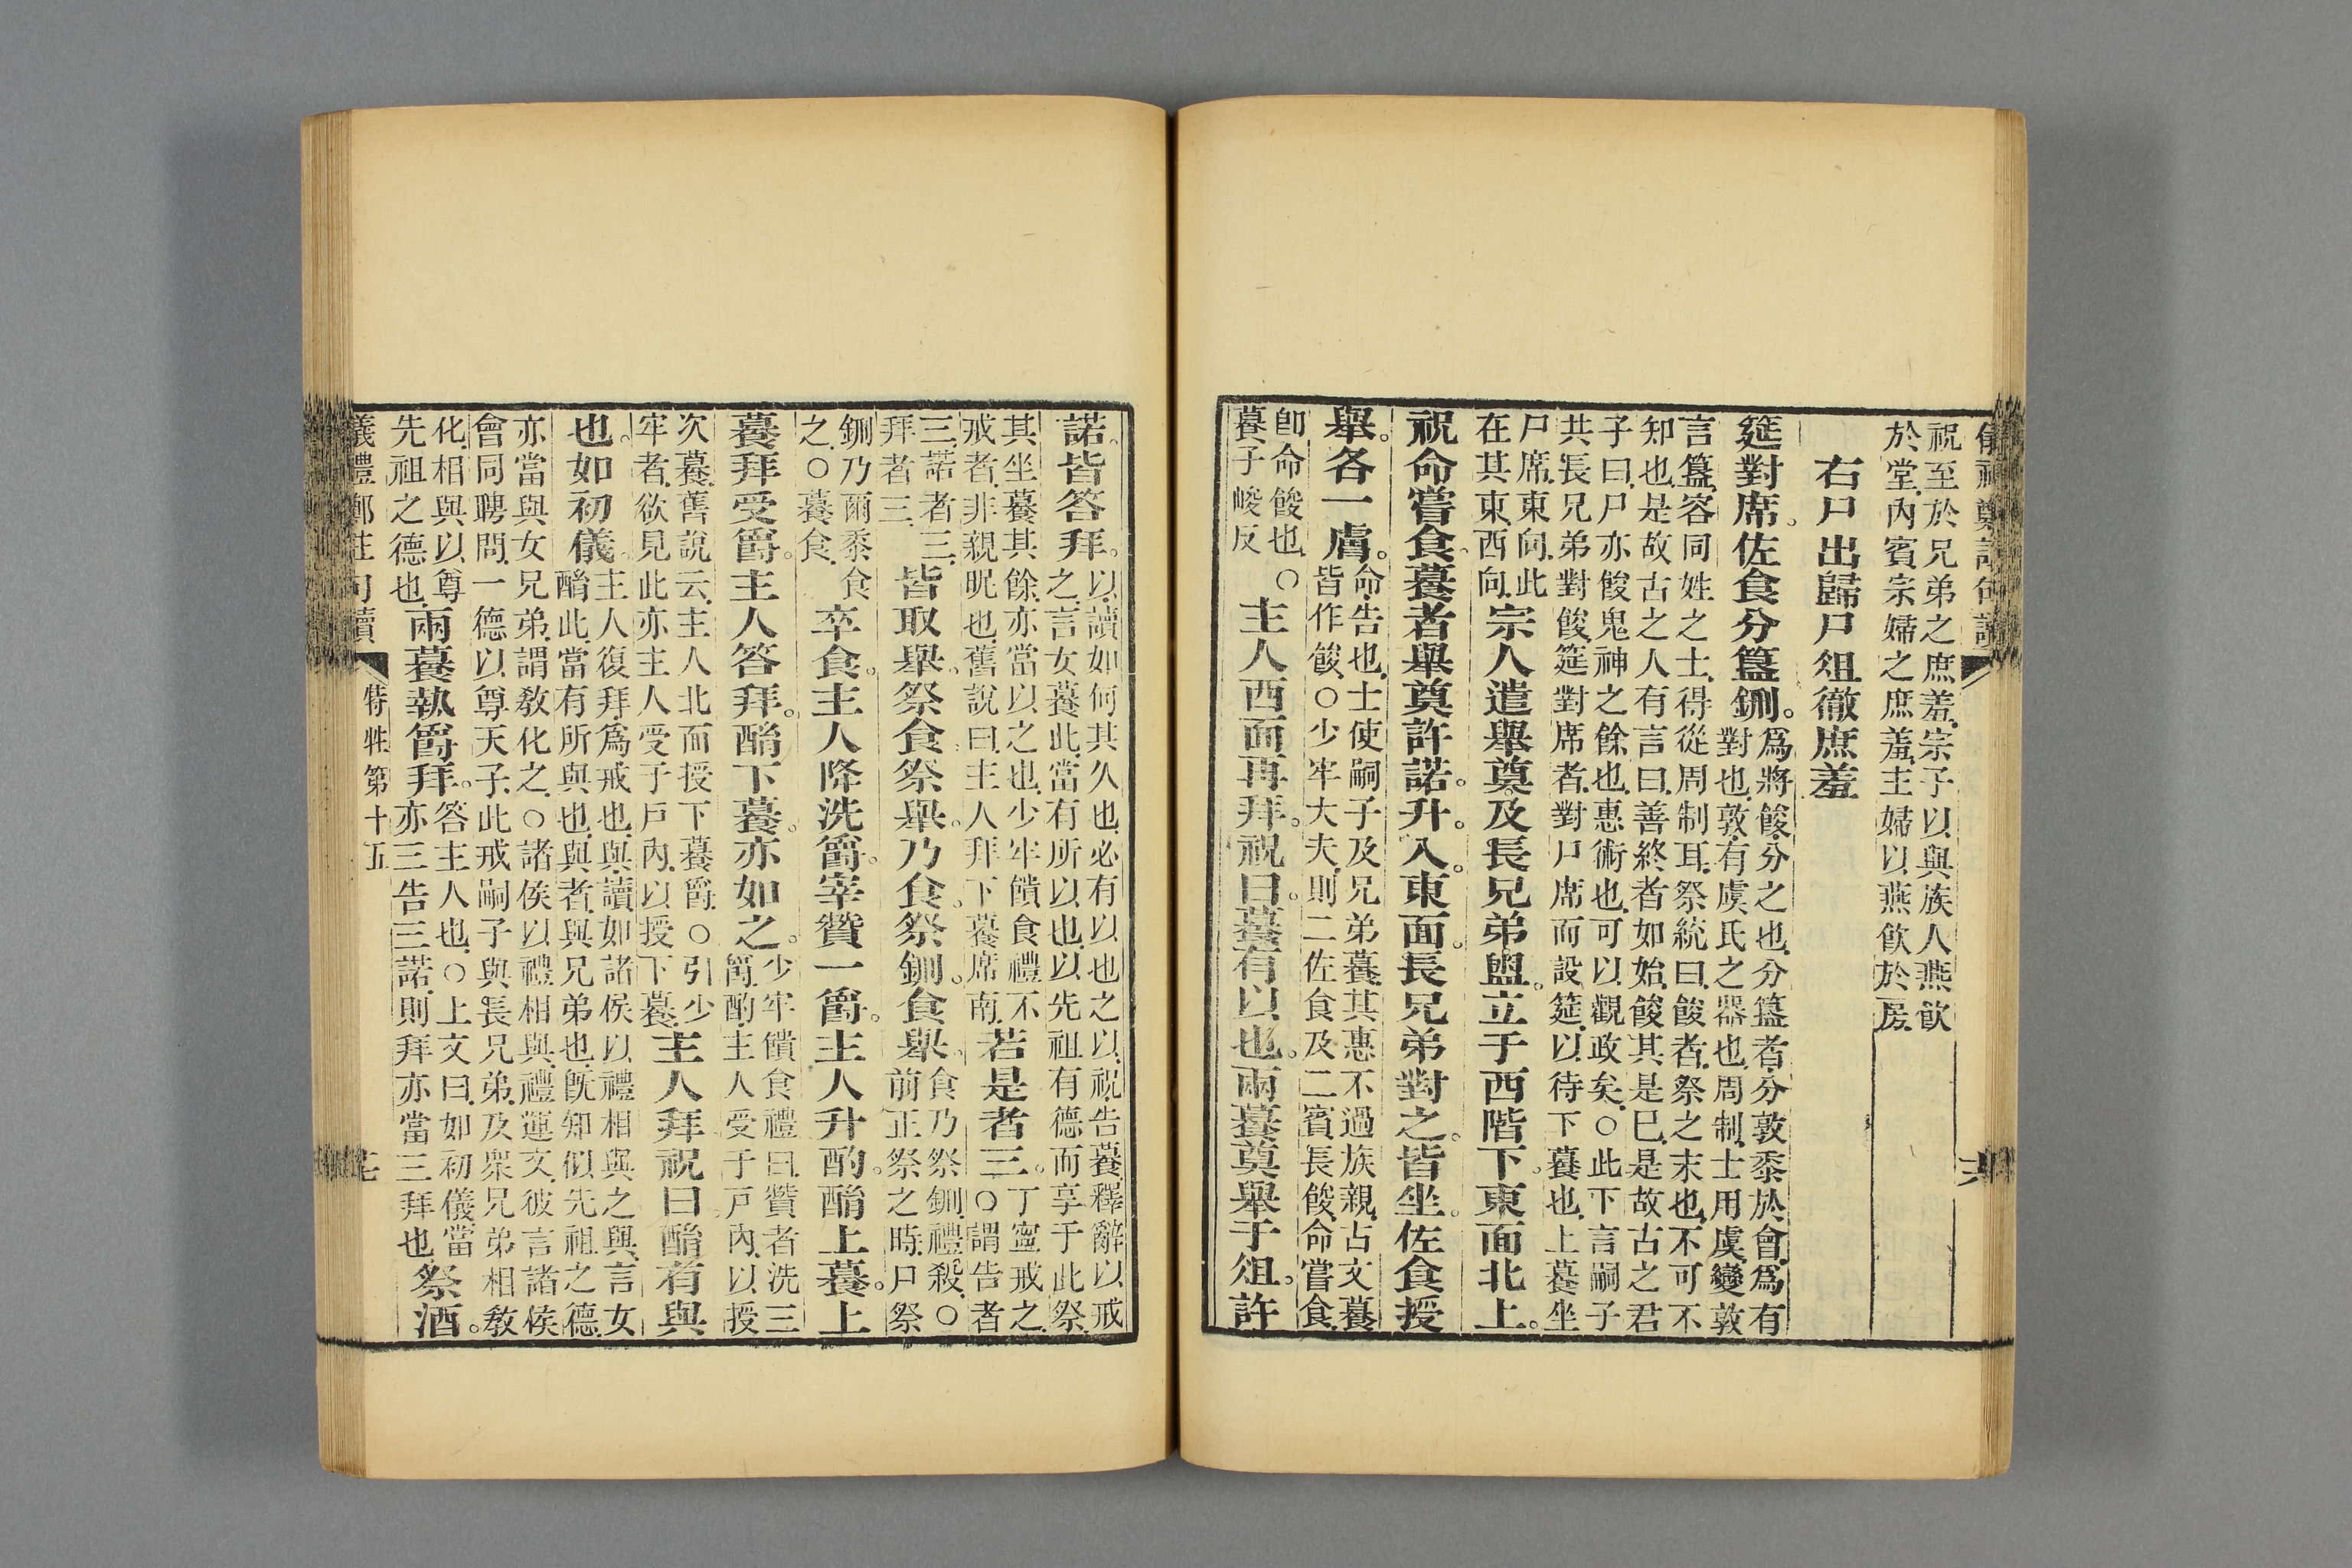 祝至於兄弟之庶羞宗子以與族人燕飮
於堂內賓宗婦之庶羞主婦以燕飮於房
右尸出歸尸俎徹庶羞
筵對席。佐食分簋鉶。爲將餕分之也分簋者分敦黍於會爲有
對也敦有虞氏之器也周制士用虞變敦
言簋容同姓之士得從周制耳祭統曰餕者祭之末也不可不
知也是故古之人有言曰善終者如始餕其是巳是故古之君
子曰尸亦餕鬼神之餘也惠術也可以觀政矣○此下言嗣子
共長兄弟對餕筵對席者對尸席而設筵以待下養也上養坐
尸席東向此
在其東西向宗人遣舉奠及長兄弟盥。立于西階下。東面北上。
祝命嘗食。養者舉奠許諾。升。入。東面。長兄弟對之。皆坐。佐食授
舉。各一膚。命告也士使嗣子及兄弟養其惠不過族親古文養
皆作餕○少牢大夫則二佐食及二賓長餕命嘗食
卽命餕也○
養子峻反主人西面再拜。祝曰。養有以也。兩養奠舉于俎。許
諾。皆答拜。以讀如何其久也必有以也之以祝告養釋辭以戒
之言女養此當有所以也以先祖有德而享于此祭
其坐養其餘亦當以之也少牢饋食禮不
戒者非親昵也舊說曰主人拜下養席南若是者三。丁寧戒之
○謂告者
三諾者三
拜者三皆取舉。祭食。祭舉。乃食。祭鉶。食舉。食乃祭鉶禮殺○
前正祭之時尸祭
鉶乃爾黍食
之○養食卒食。主人降洗爵。宰贊一爵。主人升酌。酳上養。上
養拜受爵。主人答拜。酳下養。亦如之。少牢饋食禮曰贊者洗三
爵酌主人受于戸內以授
次養舊說云主人北面授下養爵○引少
牢者欲見此亦主人受于戸內以授下養主人拜祝曰酳有與
也。如初儀。主人復拜爲戒也與讀如諸侯以禮相與之與言女
酳此當有所與也與者與兄弟也旣知似先祖之德
亦當與女兄弟謂敎化之○諸侯以禮相與禮運文彼言諸侯
會同聘問一德以尊天子此戒嗣子與長兄弟及衆兄弟相敎
化相與以尊
先祖之德也兩養執爵拜。答主人也○上文曰如初儀當
亦三告三諾則拜亦當三拜也祭酒。
特牲第十五